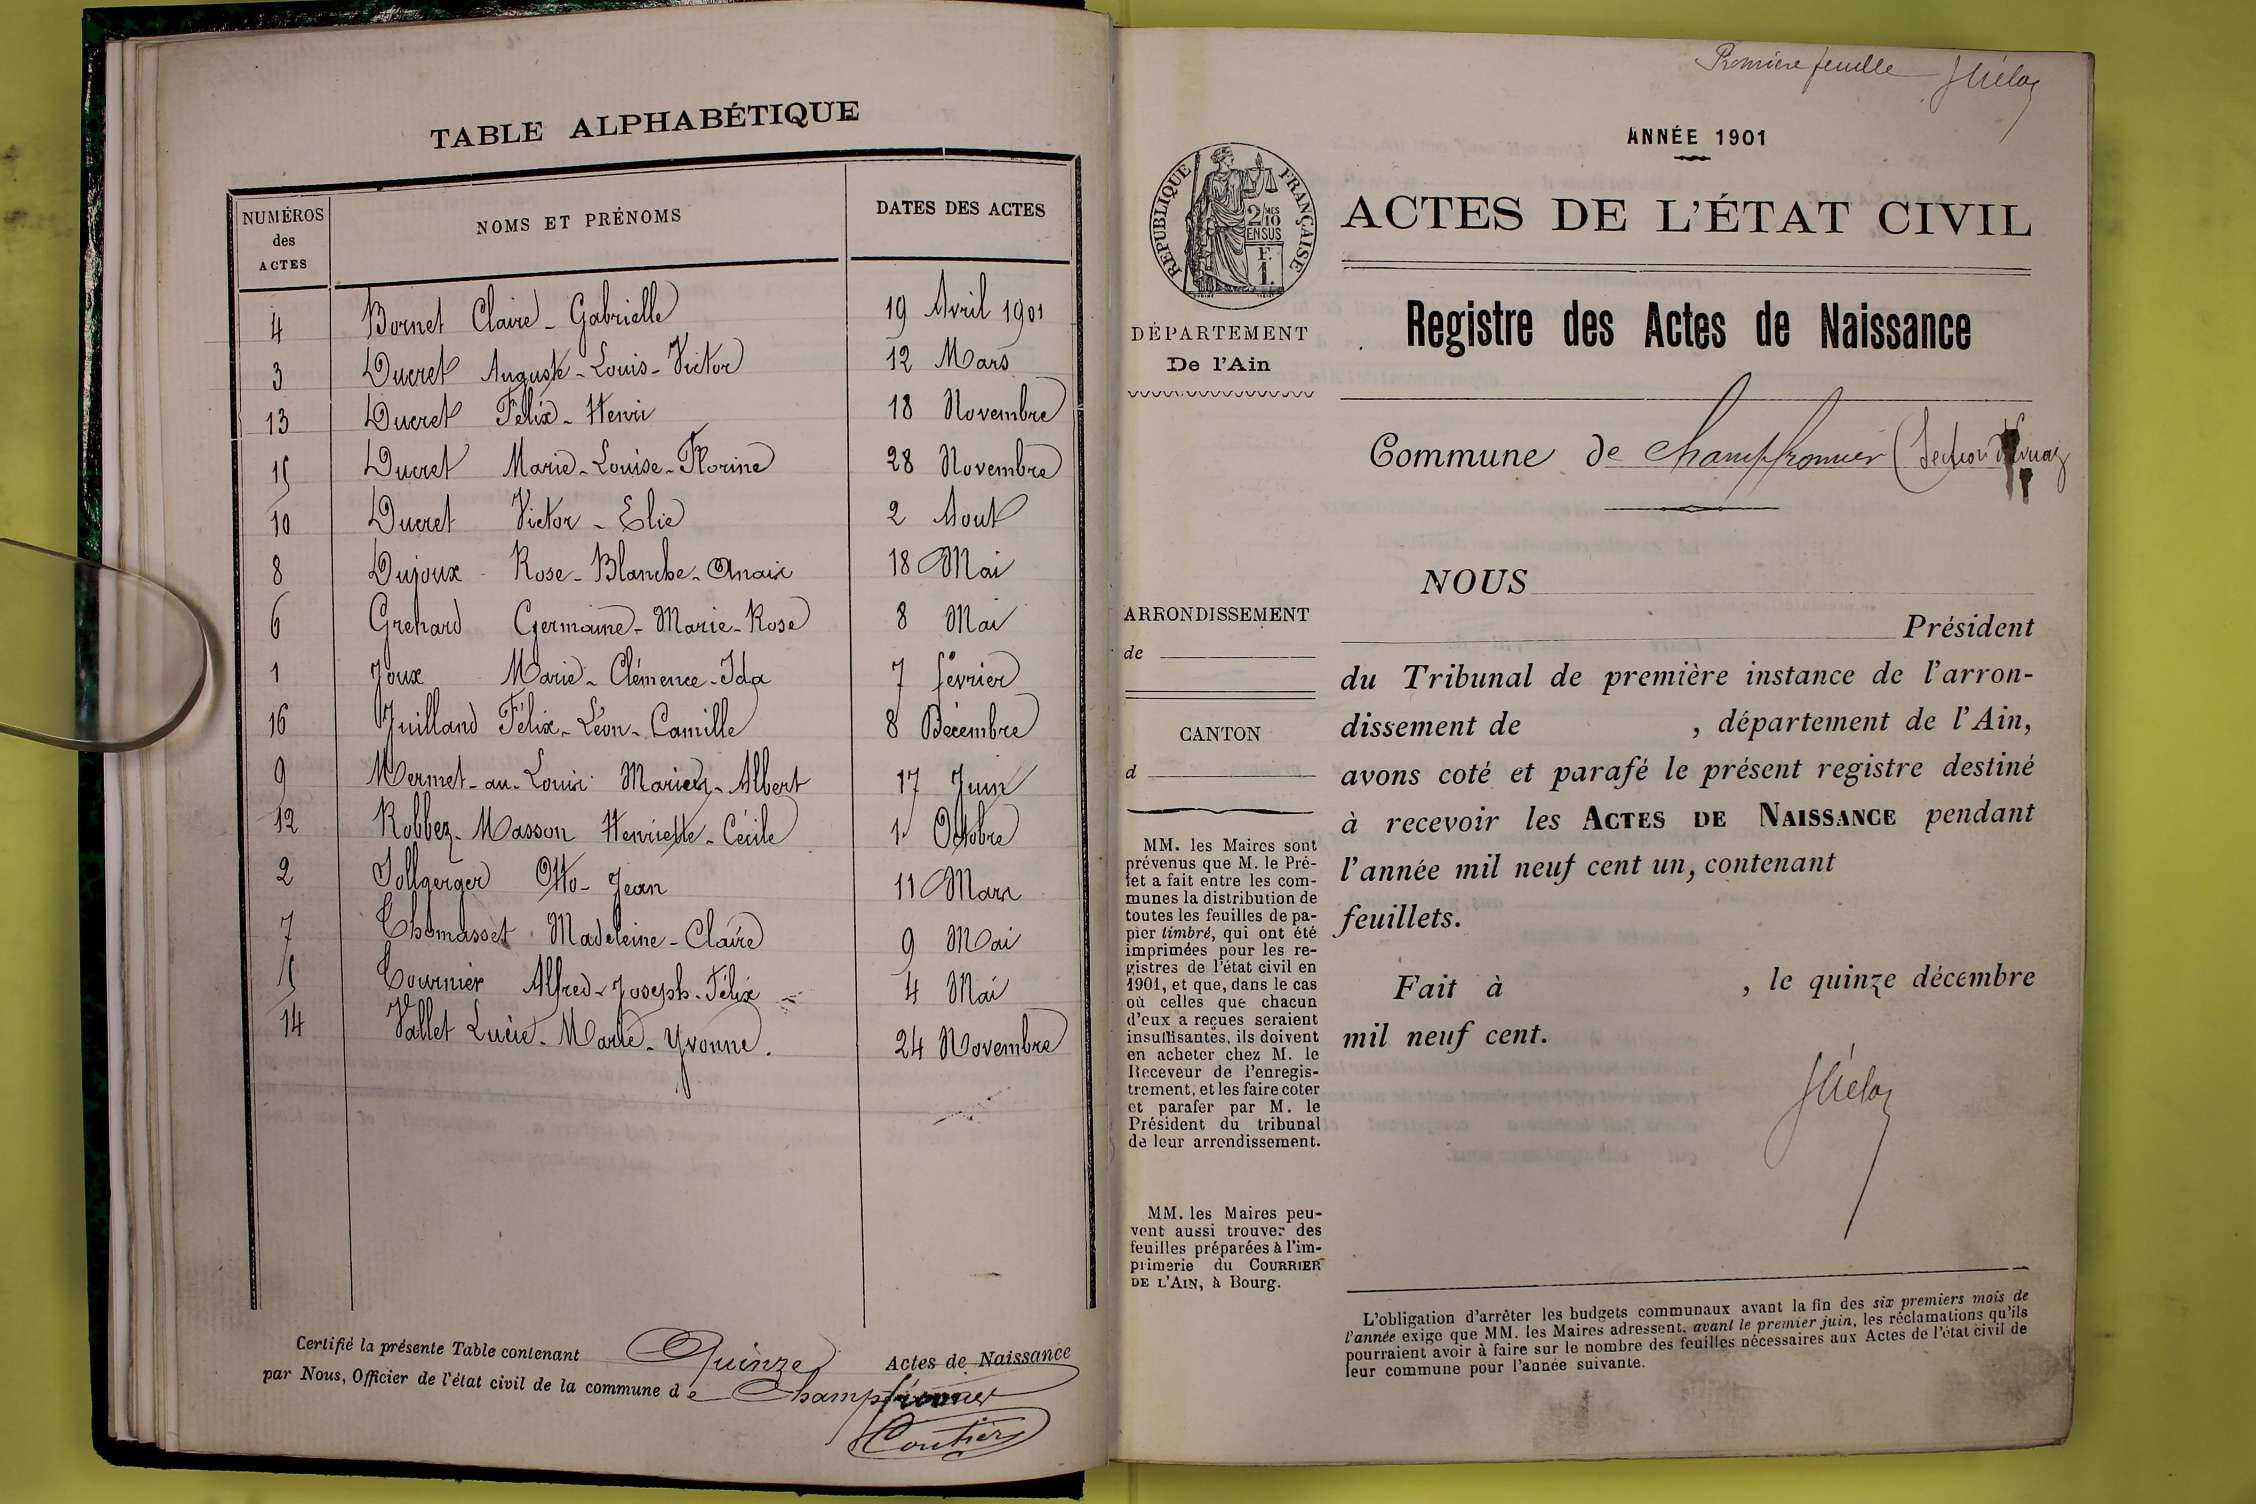 TABLE ALPHABÉTIQUE
NUMÉROS des ACTES NOMS ET PRÉNOMS DATES DES ACTES
4 Bornet Claire - Gabrielle 19 Avril 1901
3 Ducret Auguste - Louis - Victor 12 Mars
13 Ducret Félix - Henri 18 Novembre
15 Ducret Marie - Louise - Florine 28 Novembre
10 Ducret Victor - Elie 2 Aout
8 Dujoux Rose - Blanche - Anaïs 18 Mai
6 Grenard Germaine - Marie - Rose 8 Mai
1 Joux Marie - Clémence - Ida 7 février
16 Juilland Félix - Léon - Camille 8 Décembre
9 Mermet-au-Louis Marius - Albert 17 Juin
12 Robbez-Masson Henriette - Cécile 1r Octobre
2 Sollgerger Otto - Jean 11 Mars
7 Thomasset Madeleine - Claire 9 Mai
5 Tournier Alfred - Joseph - Félix 4 Mai
14 Vallet Lucie - Marie - Yvonne. 24 Novembre
Certifié la présente Table contenant Quinze Actes de Naissance
par Nous, Officier de l'état civil de la commune de Champfromier
Coutier
Première feuille
ANNÉE 1901
RÉPUBLIQUE FRANÇAISE
2/10 MES
EN SUS
F.
1.
ACTES DE L'ÉTAT CIVIL
DÉPARTEMENT
De l'Ain
Registre des Actes de Naissance
Commune de Champfromier (Section
ARRONDISSEMENT
de
CANTON
d
MM. les Maires sont
prévenus que M. le Pré-
fet a fait entre les com-
munes la distribution de
toutes les feuilles de pa-
pier timbré, qui ont été
imprimées pour les re-
gistres de l'état civil en
1901, et que, dans le cas
où celles que chacun
d'eux a reçues seraient
insuffisantes, ils doivent
en acheter chez M. le
Receveur de l'enregis-
trement, et les faire coter
et parafer par M. le
Président du tribunal
de leur arrondissement.
MM. les Maires peu-
vent aussi trouver des
feuilles préparées à l'im-
primerie du COURRIER
DE L'AIN, à Bourg.
NOUS
Président
du Tribunal de première instance de l'arron-
dissement de , département de l'Ain,
avons coté et parafé le présent registre destiné
à recevoir les ACTES DE NAISSANCE pendant
l'année mil neuf cent un, contenant
feuillets.
Fait à , le quinze décembre
mil neuf cent.
L'obligation d'arrêter les budgets communaux avant la fin des six premiers mois de
l'année exige que MM. les Maires adressent, avant le premier juin, les réclamations qu'ils
pourraient avoir à faire sur le nombre des feuilles nécessaires aux Actes de l'état civil de
leur commune pour l'année suivante.